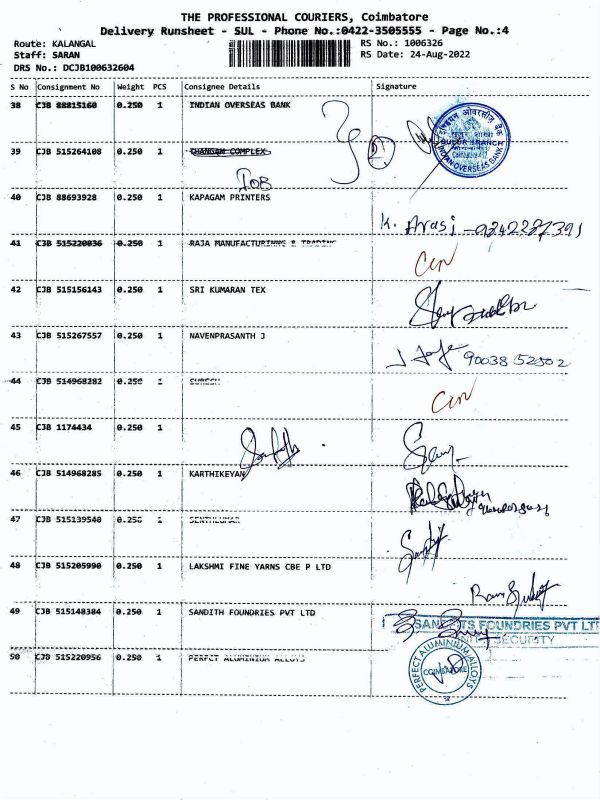 THE PROFESSIONAL COURIERS, Coimbatore
Delivery Runsheet - SUL - Phone No.:0422-3505555 - Page No.:4
Route: KALANGAL RS No.: 1006326
Staff: SARAN RS Date: 24-Aug-2022
DRS No.: DCJB100632604
S No Consignment No Weight PCS Consignee Details Signature
38 CJB 88815160 0.250 1 INDIAN OVERSEAS BANK
SULUR BRANCH
INDIAN OVERSEAS BANK
39 CJB 515264108 0.250 1 THANGAM COMPLEX
IOB
40 CJB 88693928 0.250 1 KAPAGAM PRINTERS
K. Arasi
41 CJB 515220036 0.250 1 RAJA MANUFACTURINNG & TRADING
42 CJB 515156143 0.250 1 SRI KUMARAN TEX
43 CJB 515267557 0.250 1 NAVENPRASANTH J
90038 52502
44 CJB 514968282 0.250 1 SURESH
45 CJB 1174434 0.250 1
46 CJB 514968285 0.250 1 KARTHIKEYAN
47 CJB 515139540 0.250 1 SENTHLUMAR
48 CJB 515205990 0.250 1 LAKSHMI FINE YARNS CBE P LTD
49 CJB 515148384 0.250 1 SANDITH FOUNDRIES PVT LTD
SANDITS FOUNDRIES PVT LT
SECURITY
50 CJB 515220956 0.250 1 PERFCT ALUMINIUM ALLOYS
PERFECT ALUMINIUM ALLOYS
COIMBATORE